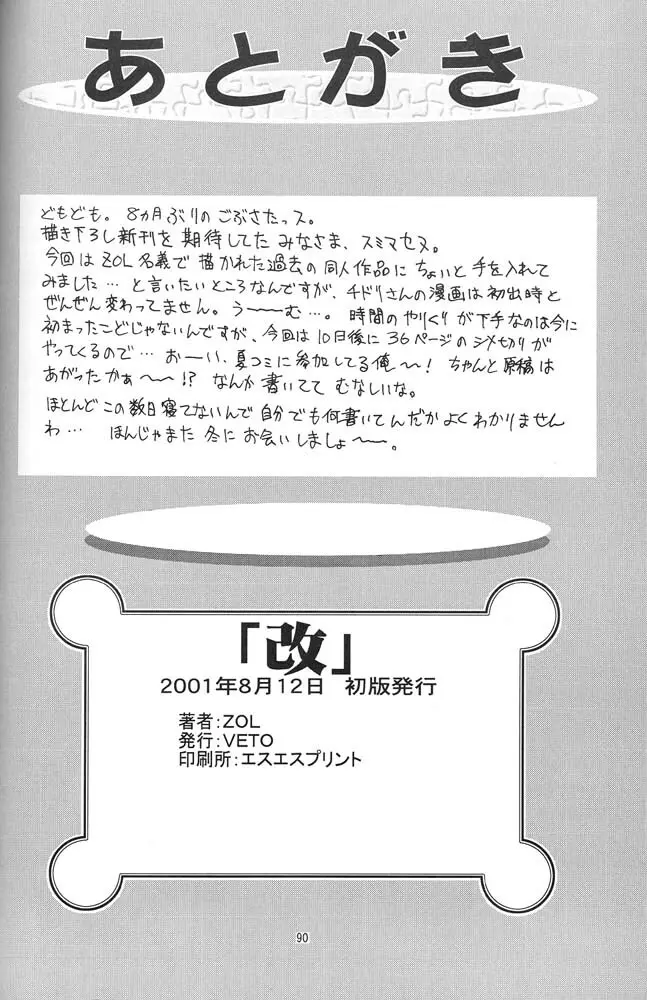 あとがき
どもども。8ヵ月ぶりのごぶさたっス。
描き下ろし新刊を期待してたみなさま、スミマセヌ。
今回はZOL名義で描かれた過去の同人作品にちょいと手を入れて
みました…と言いたいところなんですが、チドリさんの漫画は初出時と
ぜんぜん変わってません。うーーむ…。時間のやりくりが下手なのは今に
初まったこどじゃないんですが、今回は10日後に36ページのシメ切りが
やってくるので…おーーい、夏コミに参加してる俺〜〜!ちゃんと原稿は
あがったかぁ〜〜!?なんか書いててむなしいな。
ほとんどこの数日寝てないんで自分でも何書いてんだかよくわかりません
わ…ほんじゃまた冬にお会いしましょ〜〜。
「改」
2001年8月12日 初版発行
著者:ZOL
発行:VETO
印刷所:エスエスプリント
90